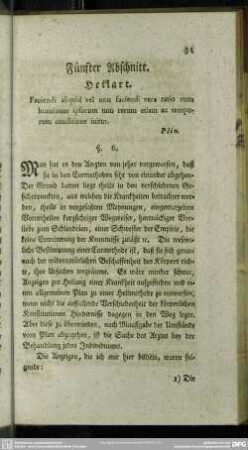 81
Fünfter Abschnitt.
Heilart.
Faciendi aliquid vel non faciendi vera ratio cum
hominum ipsorum tum rerum etiam ac tempo-
rum conditione mutatur.
Plin.
§. 6.
Man hat es den Aerzten von jeher vorgeworfen, daß
sie in den Curmethoden sehr von einander abgehen.
Der Grund davon liegt theils in den verschiedenen Ge-
sichtspunkten, aus welchen die Krankheiten betrachtet wer-
den, theils in vorgefaßten Meynungen, eingewurzelten
Vorurtheilen kurzsichtiger Wegweiser, hartnäckiger Vor-
liebe zum Schlendrian, einer Schwester der Empirie, die
keine Erweiterung der Kenntnisse zuläßt. Die wesent-
liche Bestimmung einer Curmethode ist, daß sie sich genau
nach der widernatürlichen Beschaffenheit des Körpers richte,
ihre Ursachen wegräume. Es wäre minder schwer,
Anzeigen zur Heilung einer Krankheit aufzustellen und
einen allgemeinen Plan zu einer Heilmethode zu entwerfen,
wenn nicht die auffallende Verschiedenheit der körperlichen
Konstitutionen Hindernisse dagegen in den Weg legte.
Aber diese zu überwinden, nach Maaßgabe der Umstände
vom Plan abzugehen, ist die Sache des Arztes bey der
Behandlung jedes Individuums.
Die Anzeigen, die ich mir hier bildete, waren fol-
gende:
1) Die